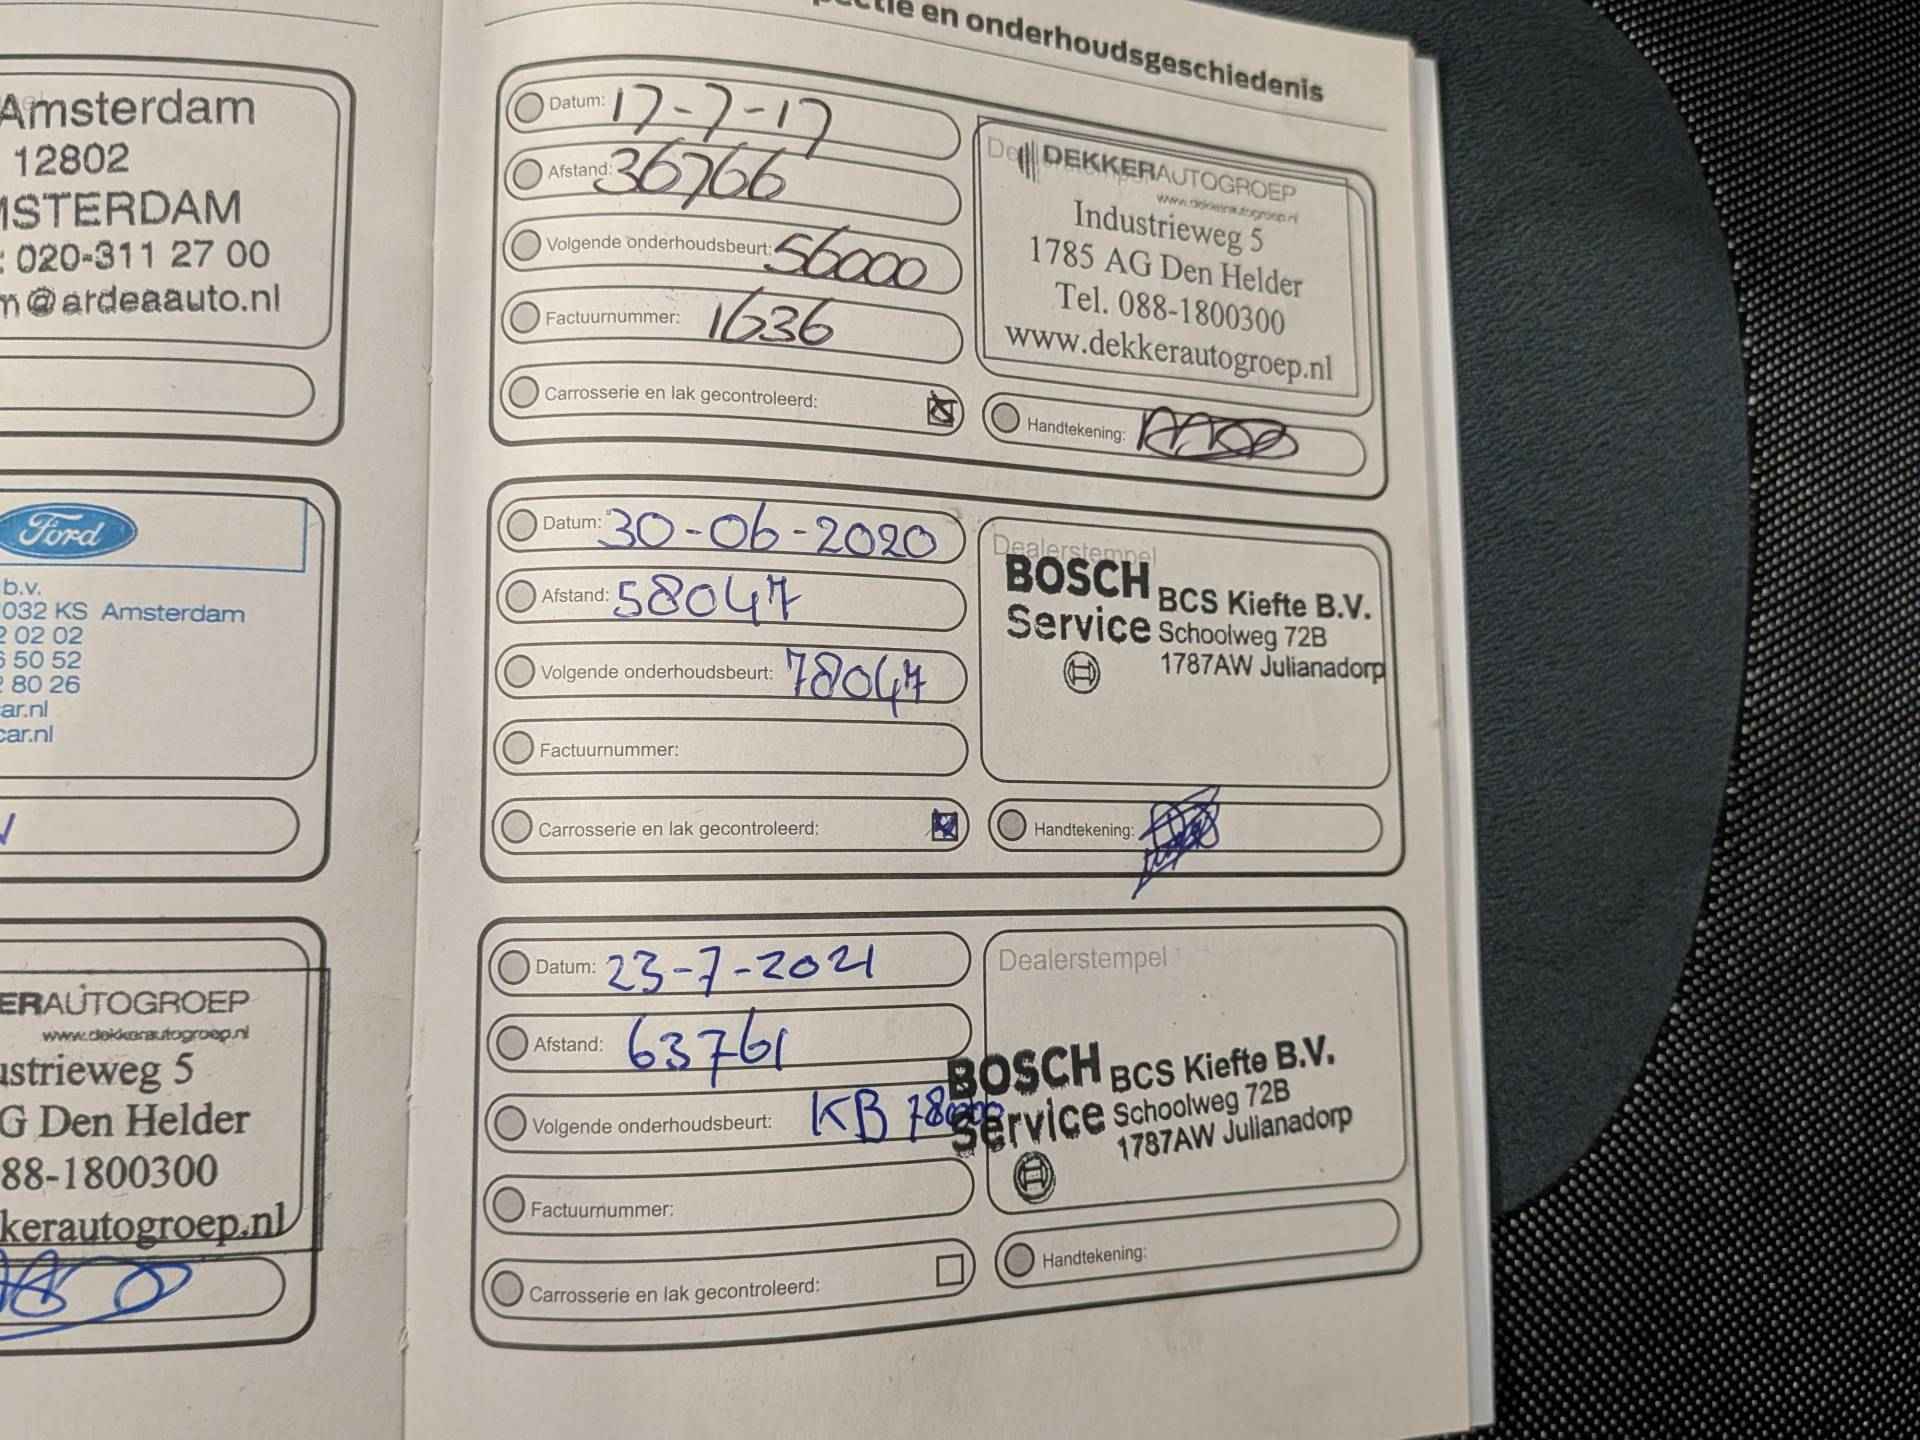 Amsterdam
12802
MSTERDAM
: 020-311 27 00
m@ardeaauto.nl
Ford
b.v.
032 KS Amsterdam
2 02 02
6 50 52
2 80 26
ar.nl
car.nl
ERAUTOGROEP
www.dekkerautogroep.nl
ustrieweg 5
G Den Helder
88-1800300
kkerautogroep.nl
pectie en onderhoudsgeschiedenis
Datum: 17-7-17
Afstand: 36766
Volgende onderhoudsbeurt: 56000
Factuurnummer: 1636
Carrosserie en lak gecontroleerd:
DEKKERAUTOGROEP
www.dekkerautogroep.nl
Industrieweg 5
1785 AG Den Helder
Tel. 088-1800300
www.dekkerautogroep.nl
Handtekening:
Datum: 30-06-2020
Afstand: 58047
Volgende onderhoudsbeurt: 78047
Factuurnummer:
Carrosserie en lak gecontroleerd:
Dealerstempel
BOSCH BCS Kiefte B.V.
Service Schoolweg 72B
1787AW Julianadorp
Handtekening:
Datum: 23-7-2021
Afstand: 63761
Volgende onderhoudsbeurt: KB 78000
Factuurnummer:
Carrosserie en lak gecontroleerd:
Dealerstempel
BOSCH BCS Kiefte B.V.
Service Schoolweg 72B
1787AW Julianadorp
Handtekening: